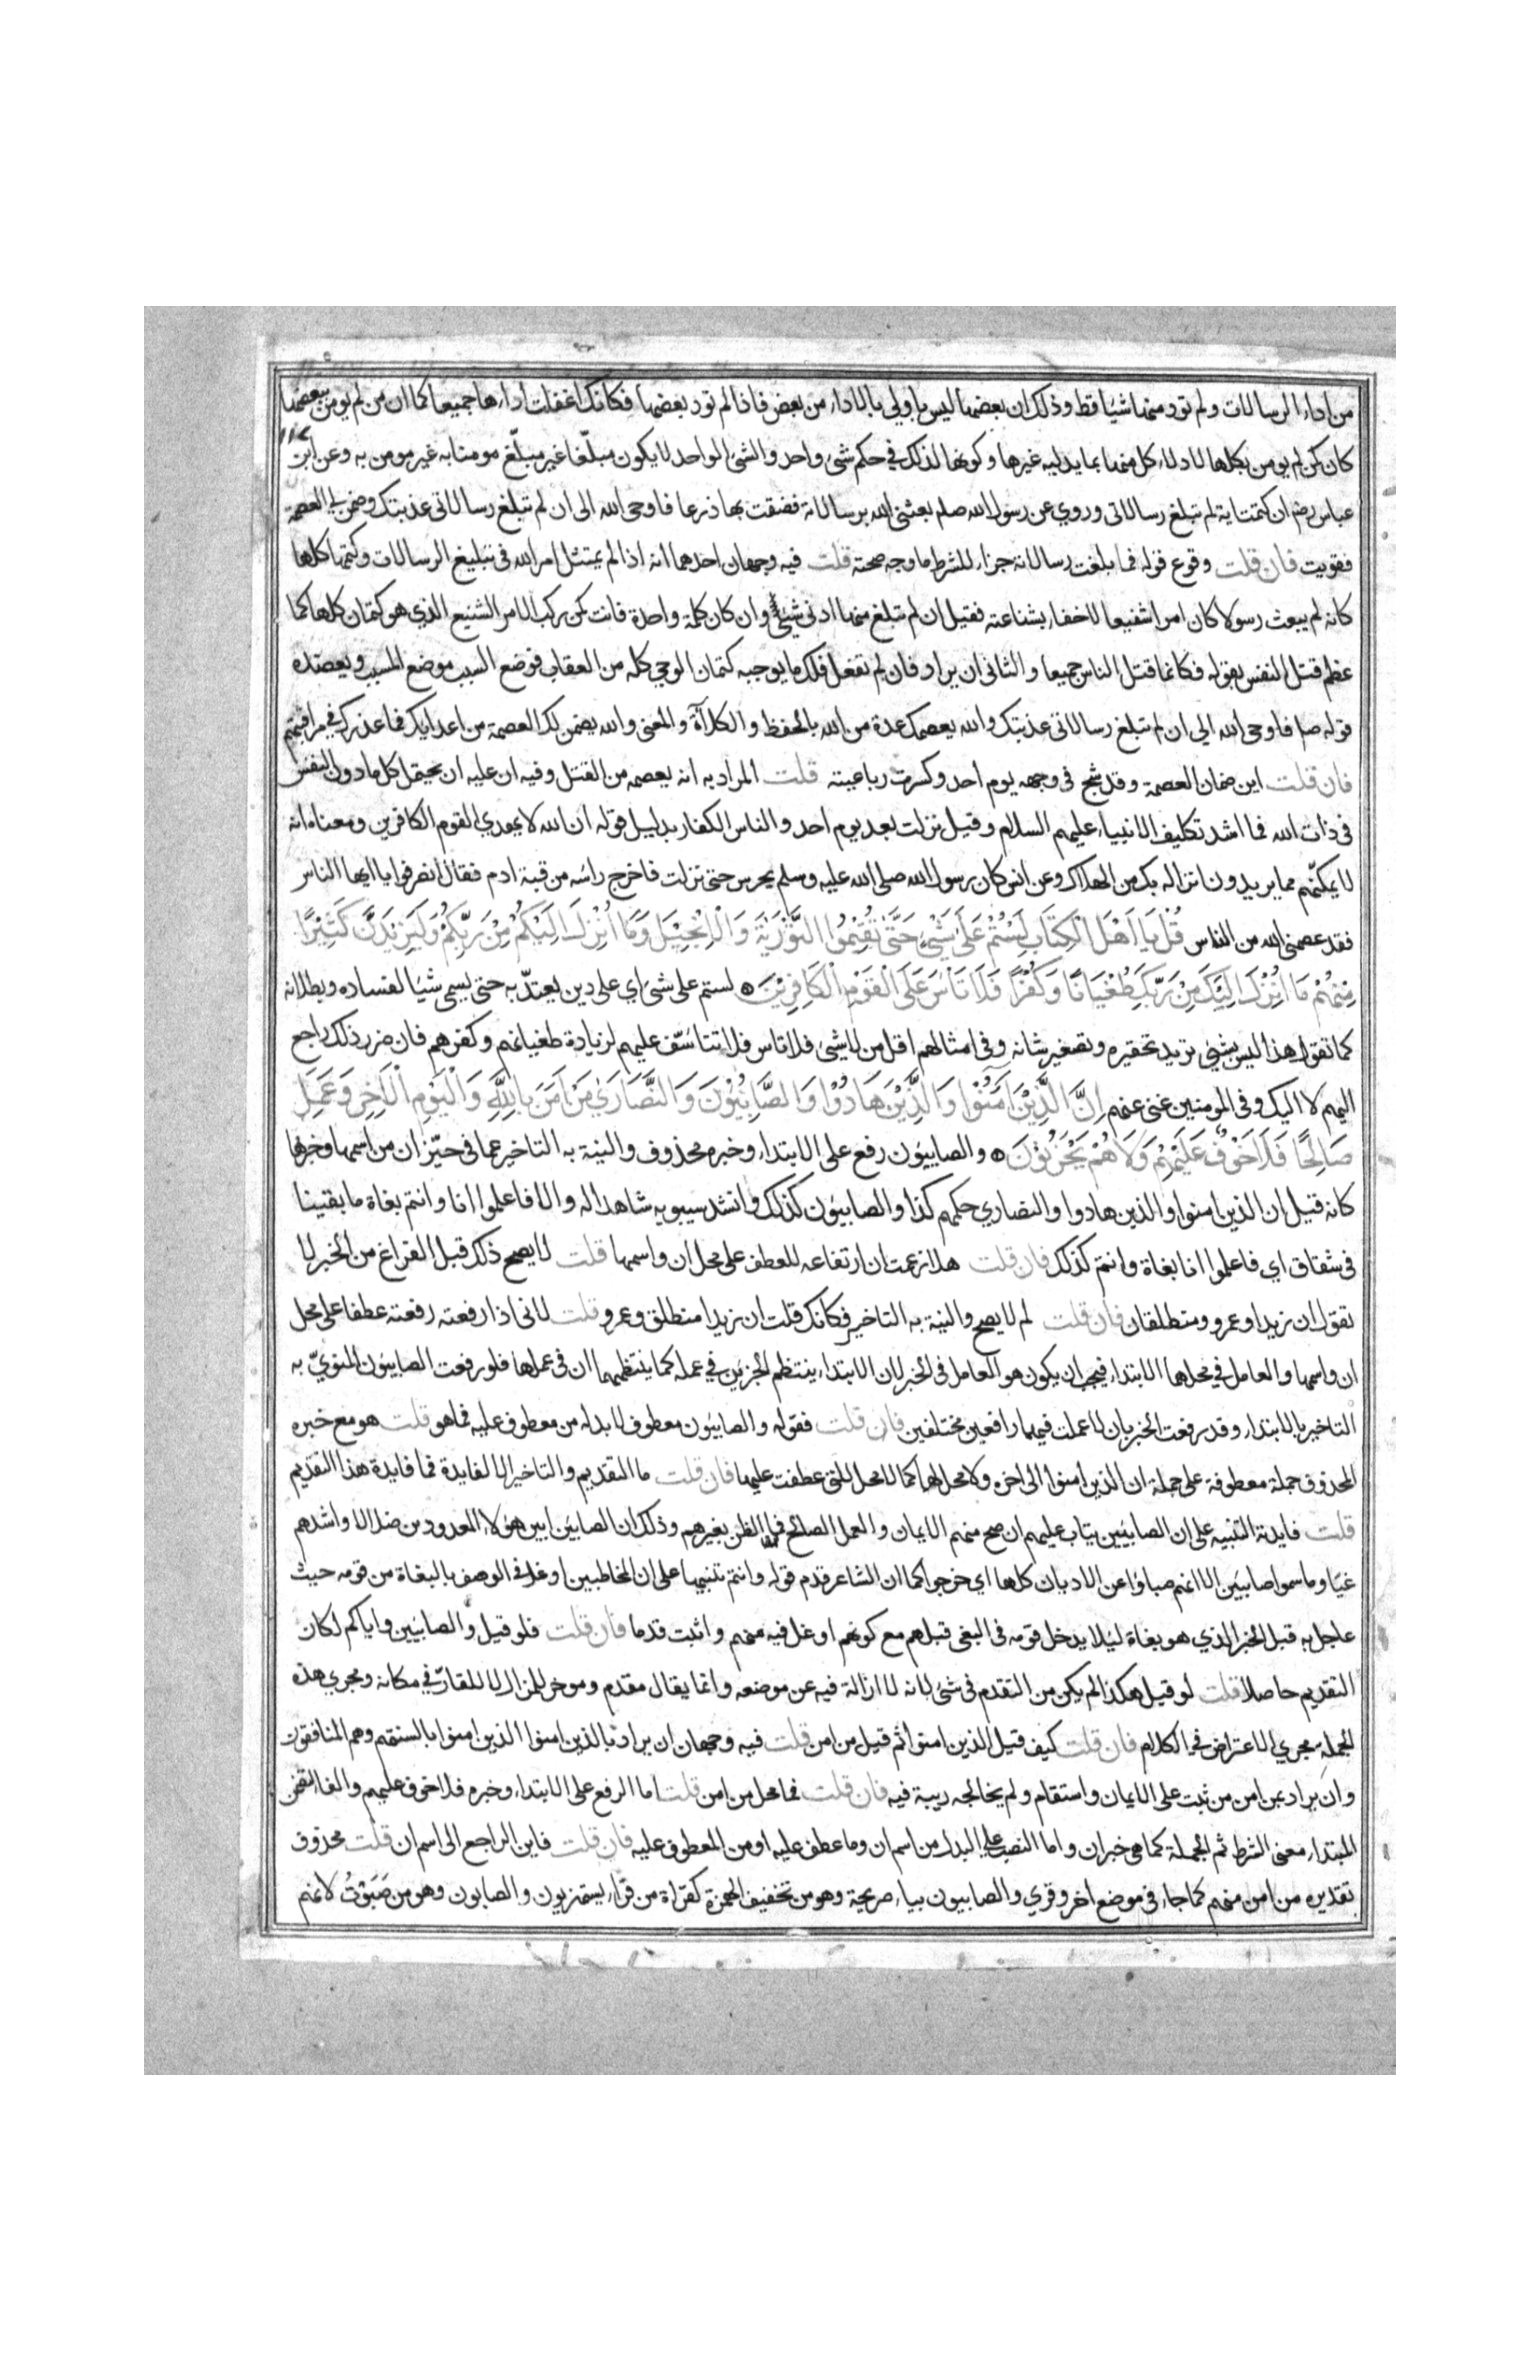 من اداء الرسالات ولم تود منها شيئا قط وذلك ان بعضها ليس باولي بالاداء من بعض فاذا لم تود بعضها فكانك اغفلت اداءها جميعا كما ان من لم يومن ببعضها
كان كمن لم يومن بكلها لادلاء كل منها بما يدليه غيرها وكونها لذلك في حكم شئ واحد والشئ الواحد لا يكون مبلّغا غير مبلّغ مومنا به غير مومن به وعن ابن
عباس رضه ان كتمت اية لم تبلغ رسالاتى وروي عن رسول الله صلم بعثنى الله برسالاته فضقت بها ذرعا فاوحى الله الى ان لم تبلغ رسالاتى عذبتك وضمن لي العصمة
فقويت فان قلت وقوع قوله فما بلغت رسالاته جزاء للشرط ما وجه صحته قلت فيه وجهان احدهما انه اذا لم يمتثل امر الله فى تبليغ الرسالات وكتمها كلها
كانه لم يبعث رسولا كان امرا شنيعا لا خفاء بشناعته فقيل ان لم تبلغ منها ادنى شئ وان كان كلمة واحدة فانت كمن ركب الامر الشنيع الذي هو كتمان كلها كما
عظم قتل النفس بقوله فكانما قتل الناس جميعا والثانى ان يراد فان لم تفعل فلك ما يوجبه كتمان الوحي كله من العقاب فوضع السبب موضع المسبب ويعضده
قوله صلم فاوحى الله الي ان لم تبلغ رسالاتى عذبتك والله يعصمك عدة من الله بالحفظ والكلآة والمعنى والله يضمن لك العصمة من اعدايك فما عذرك في مراقبتهم
فان قلت اين ضمان العصمة وقد شج فى وجهه يوم احد وكسرت رباعيته قلت المراد به انه يعصمه من القتل وفيه ان عليه ان يحتمل كل ما دون النفس
فى ذات الله فما اشد تكليف الانبياء عليهم السلام وقيل نزلت بعد يوم احد والناس الكفار بدليل قوله ان الله لا يهدي القوم الكافرين ومعناه انه
لا يمكنهم مما يريدون انزاله بك من الهلاك وعن انس كان رسول الله صلى الله عليه وسلم يحرس حتى نزلت فاخرج راسه من قبة ادم فقال انصرفوا يا ايها الناس
فقد عصمنى الله من الناس قُلْ يَا اَهْلَ الْكِتَابِ لَسْتُمْ عَلَى شَيْءٍ حَتَّى تُقِيْمُوا التَّوْرَيةَ وَالْاِنْجِيْلَ وَمَا اُنْزِلَ اِلَيْكُمْ مِنْ رَبِّكُمْ وَلَيَزِيْدَنَّ كَثِيْرًا
مِنْهُمْ مَا اُنْزِلَ اِلَيْكَ مِنْ رَبِّكَ طُغْيَانًا وَكُفْرًا فَلَا تَأْسَ عَلَى الْقَوْمِ الْكَافِرِيْنَ لستم على شئ اي على دين يعتدّ به حتى يسمى شيئا لفساده وبطلانه
كما تقول هذا ليس بشئ تريد تحقيره وتصغير شانه وفى امثالهم اقل من لا شئ فلا تاس فلا تتاسّف عليهم لزيادة طغيانهم وكفرهم فان ضرر ذلك راجع
اليهم لا اليك وفى المومنين غنى عنهم اِنَّ الَّذِيْنَ اٰمَنُوْا وَالَّذِيْنَ هَادُوْا وَالصَّابِئُوْنَ وَالنَّصَارَى مَنْ اٰمَنَ بِاللّٰهِ وَالْيَوْمِ الْاٰخِرِ وَعَمِلَ
صَالِحًا فَلَا خَوْفٌ عَلَيْهِمْ وَلَا هُمْ يَحْزَنُوْنَ والصابيون رفع على الابتداء وخبره محذوف والنية به التاخير عما فى حيّز ان من اسمها وخبرها
كانه قيل ان الذين امنوا والذين هادوا والنصاري حكمهم كذا والصابيون كذلك وانشد سيبويه شاهدا له والا فاعلموا انا وانتم بغاة ما بقينا
فى شقاق اي فاعلموا انا بغاة وانتم كذلك فان قلت هلا زعمت ان ارتفاعه للعطف على محل ان واسمها قلت لا يصح ذلك قبل الفراغ من الخبر لا
تقول ان زيدا وعمرو منطلقان فان قلت لم لا يصح والنية به التاخير فكانك قلت ان زيدا منطلق وعمرو قلت لانى اذا رفعته رفعته عطفا على محل
ان واسمها والعامل في محلها الابتداء فيجب ان يكون هو العامل فى الخبر لان الابتداء ينتظم الجزين في عمله كما ينتظمهما ان فى عملها فلو رفعت الصابيون المنويّ به
التاخير بالابتداء وقد رفعت الخبر بان لاعملت فيهما رافعين مختلفين فان قلت فقوله والصابيون معطوف لا بد له من معطوف عليه فما هو قلت هو مع خبره
المحذوف جملة معطوفة على جملة ان الذين امنوا الى اخره ولا محل لها كما لا محل للتى عطفت عليها فان قلت ما التقديم والتاخير الا لفايدة فما فايدة هذا التقديم
قلت فايدته التنبيه على ان الصابيين يتاب عليهم ان صح منهم الايمان والعمل الصالح فما الظن بغيرهم وذلك ان الصابيين ابين هؤلاء المعدودين ضلالا واشدهم
غيّا وما سموا صابيين الا انهم صباوا عن الاديان كلها اي خرجوا كما ان الشاعر قدم قوله وانتم تنبيها على ان المخاطبين اوغل فى الوصف بالبغاة من قومه حيث
عاجل به قبل الخبر الذي هو بغاة ليلا يدخل قومه فى البغى قبلهم مع كونهم اوغل فيه منهم واثبت قدما فان قلت فلو قيل والصابيين واياكم لكان
التقديم حاصلا قلت لو قيل هكذا لم يكن من التقدم فى شئ لانه لا ازالة فيه عن موضعه وانما يقال مقدم وموخر للمزال لا للقارّ في مكانه ومجري هذه
الجملة مجري الاعتراض فى الكلام فان قلت كيف قيل الذين امنوا ثم قيل من امن قلت فيه وجهان ان يراد بالذين امنوا الذين امنوا بالسنتهم وهم المنافقون
وان يراد بمن امن من ثبت على الايمان واستقام ولم يخالجه ريبة فيه فان قلت فما محل من امن قلت اما الرفع على الابتداء وخبره فلا خوف عليهم والفا لتضمن
المبتداء معنى الشرط ثم الجملة كما هى خبر ان واما النصب على البدل من اسم ان وما عطف عليه او من المعطوف عليه فان قلت فاين الراجع الى اسم ان قلت محذوف
تقديره من امن منهم كما جاء فى موضع اخر وقري والصابيون بياء صريحة وهو من تخفيف الهمزة كقراة من قرا يستهزيون والصابون وهو من صَبَوْتُ لانهم